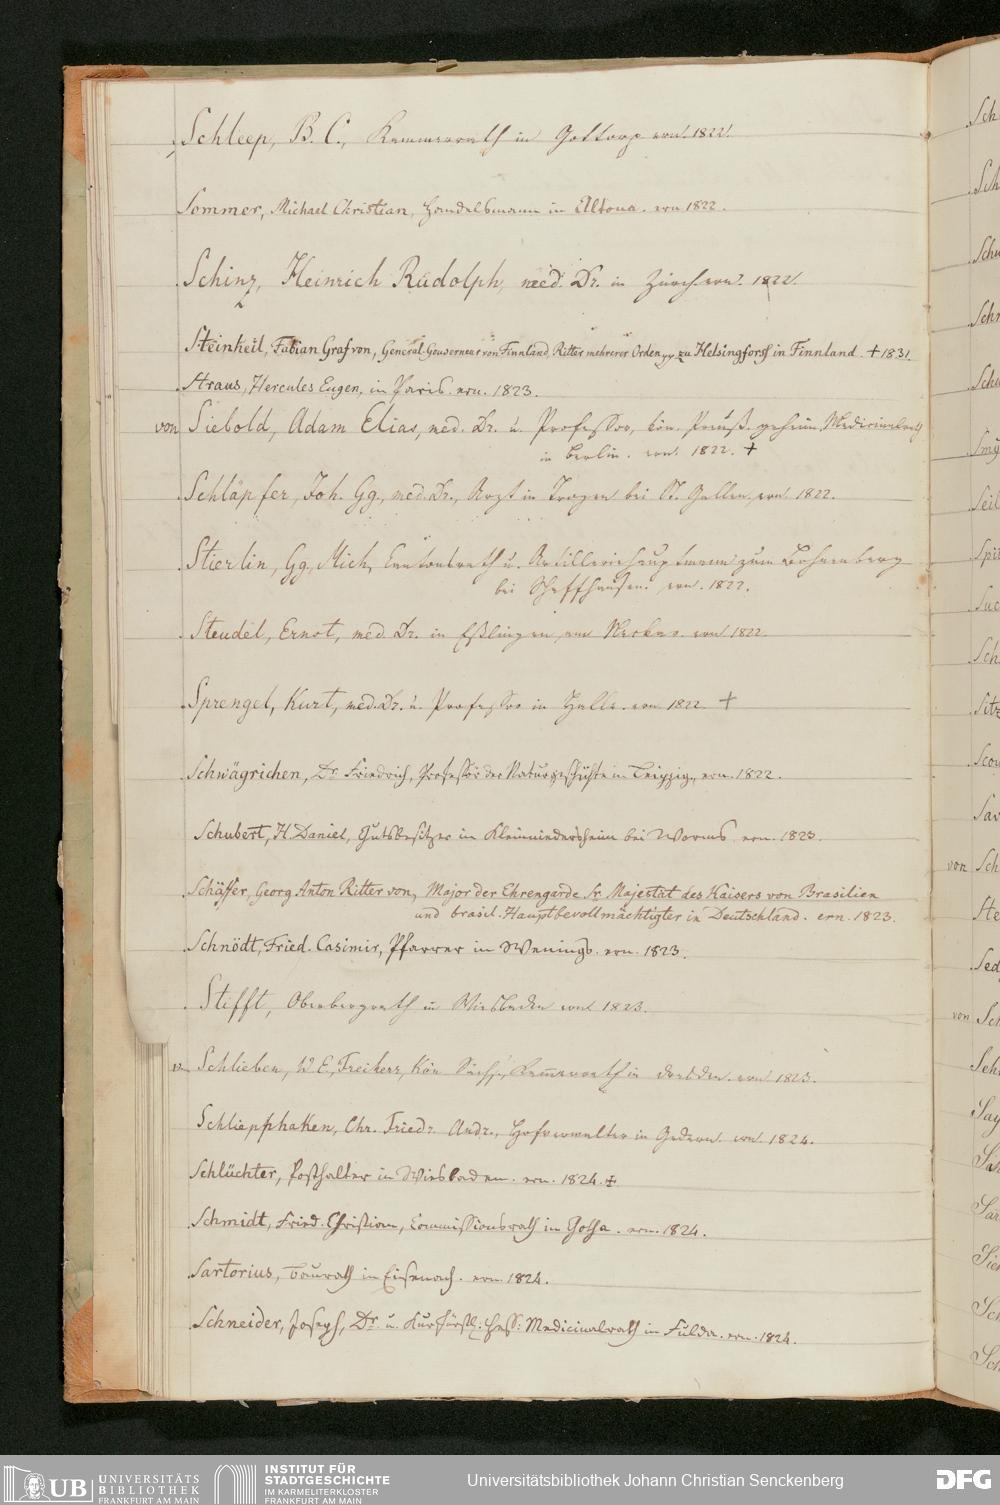 Schleep, B. C., Kammerrath in Gottorp ern. 1822.
Sommer, Michael Christian, Handelsmann in Altona. ern 1822.
Schinz, Heinrich Rudolph, med. Dr. in Zürch ern. 1822.
Steinheil, Fabian Graf von, General-Gouverneur von Finnland, Ritter mehrerer Orden pp zu Helsingforss in Finnland. † 1831.
Straus, Hercules Eugen, in Paris. ern. 1823.
von Siebold, Adam Elias, med. Dr. u. Professor, kön. Preuß. geheim. Medicinalrath
in Berlin. ern. 1822. †
Schläpfer, Joh. Gg., med. Dr., Arzt in Trogen bei St. Gallen, ern 1822.
Stierlin, Gg. Mich, Cantonsrath u. Artilleriehauptmann zum
bei Schaffhausen. ern. 1822.
Steudel, Ernst, med. Dr. in Eßlingen am Neckar. ern 1822.
Sprengel, Kurt, med. Dr. u. Professor in Halle. ern 1822 †
Schwägrichen, Dr. Friedrich, Professor der Naturgeschichte in Leipzig, ern. 1822.
Schubert, H. Daniel, Gutsbesitzer in Kleinniedesheim bei Worms ern. 1823.
Schäffer, Georg Anton Ritter von, Major der Ehrengarde Sr. Majestät des Kaisers von Brasilien
und brasil. Hauptbevollmächtigter in Deutschland. ern. 1823.
Schnödt, Fried. Casimir, Pfarrer in Wenings. ern. 1823.
Stifft, Oberbergrath in Wiesbaden ern. 1823.
v. Schlieben, W. E, Freiherr, Kön Sächs. Kammerrath in Dresden. ern. 1823.
Schliephaken, Chr. Friedr. Andr., Hofverwalter in Gedern. ern. 1824.
Schlüchter, Posthalter in Wiesbaden. ern. 1824. †
Schmidt, Fried. Christian, Commissionsrath in Gotha. ern. 1824.
Sartorius, Baurath in Eisenach. ern. 1824.
Schneider, Joseph, Dr. u. Kurfürstl. Hess: Medicinalrath in Fulda. ern. 1824.
UB UNIVERSITÄTS
BIBLIOTHEK
FRANKFURT AM MAIN
INSTITUT FÜR
STADTGESCHICHTE
IM KARMELITERKLOSTER
FRANKFURT AM MAIN
Universitätsbibliothek Johann Christian Senckenberg
DFG